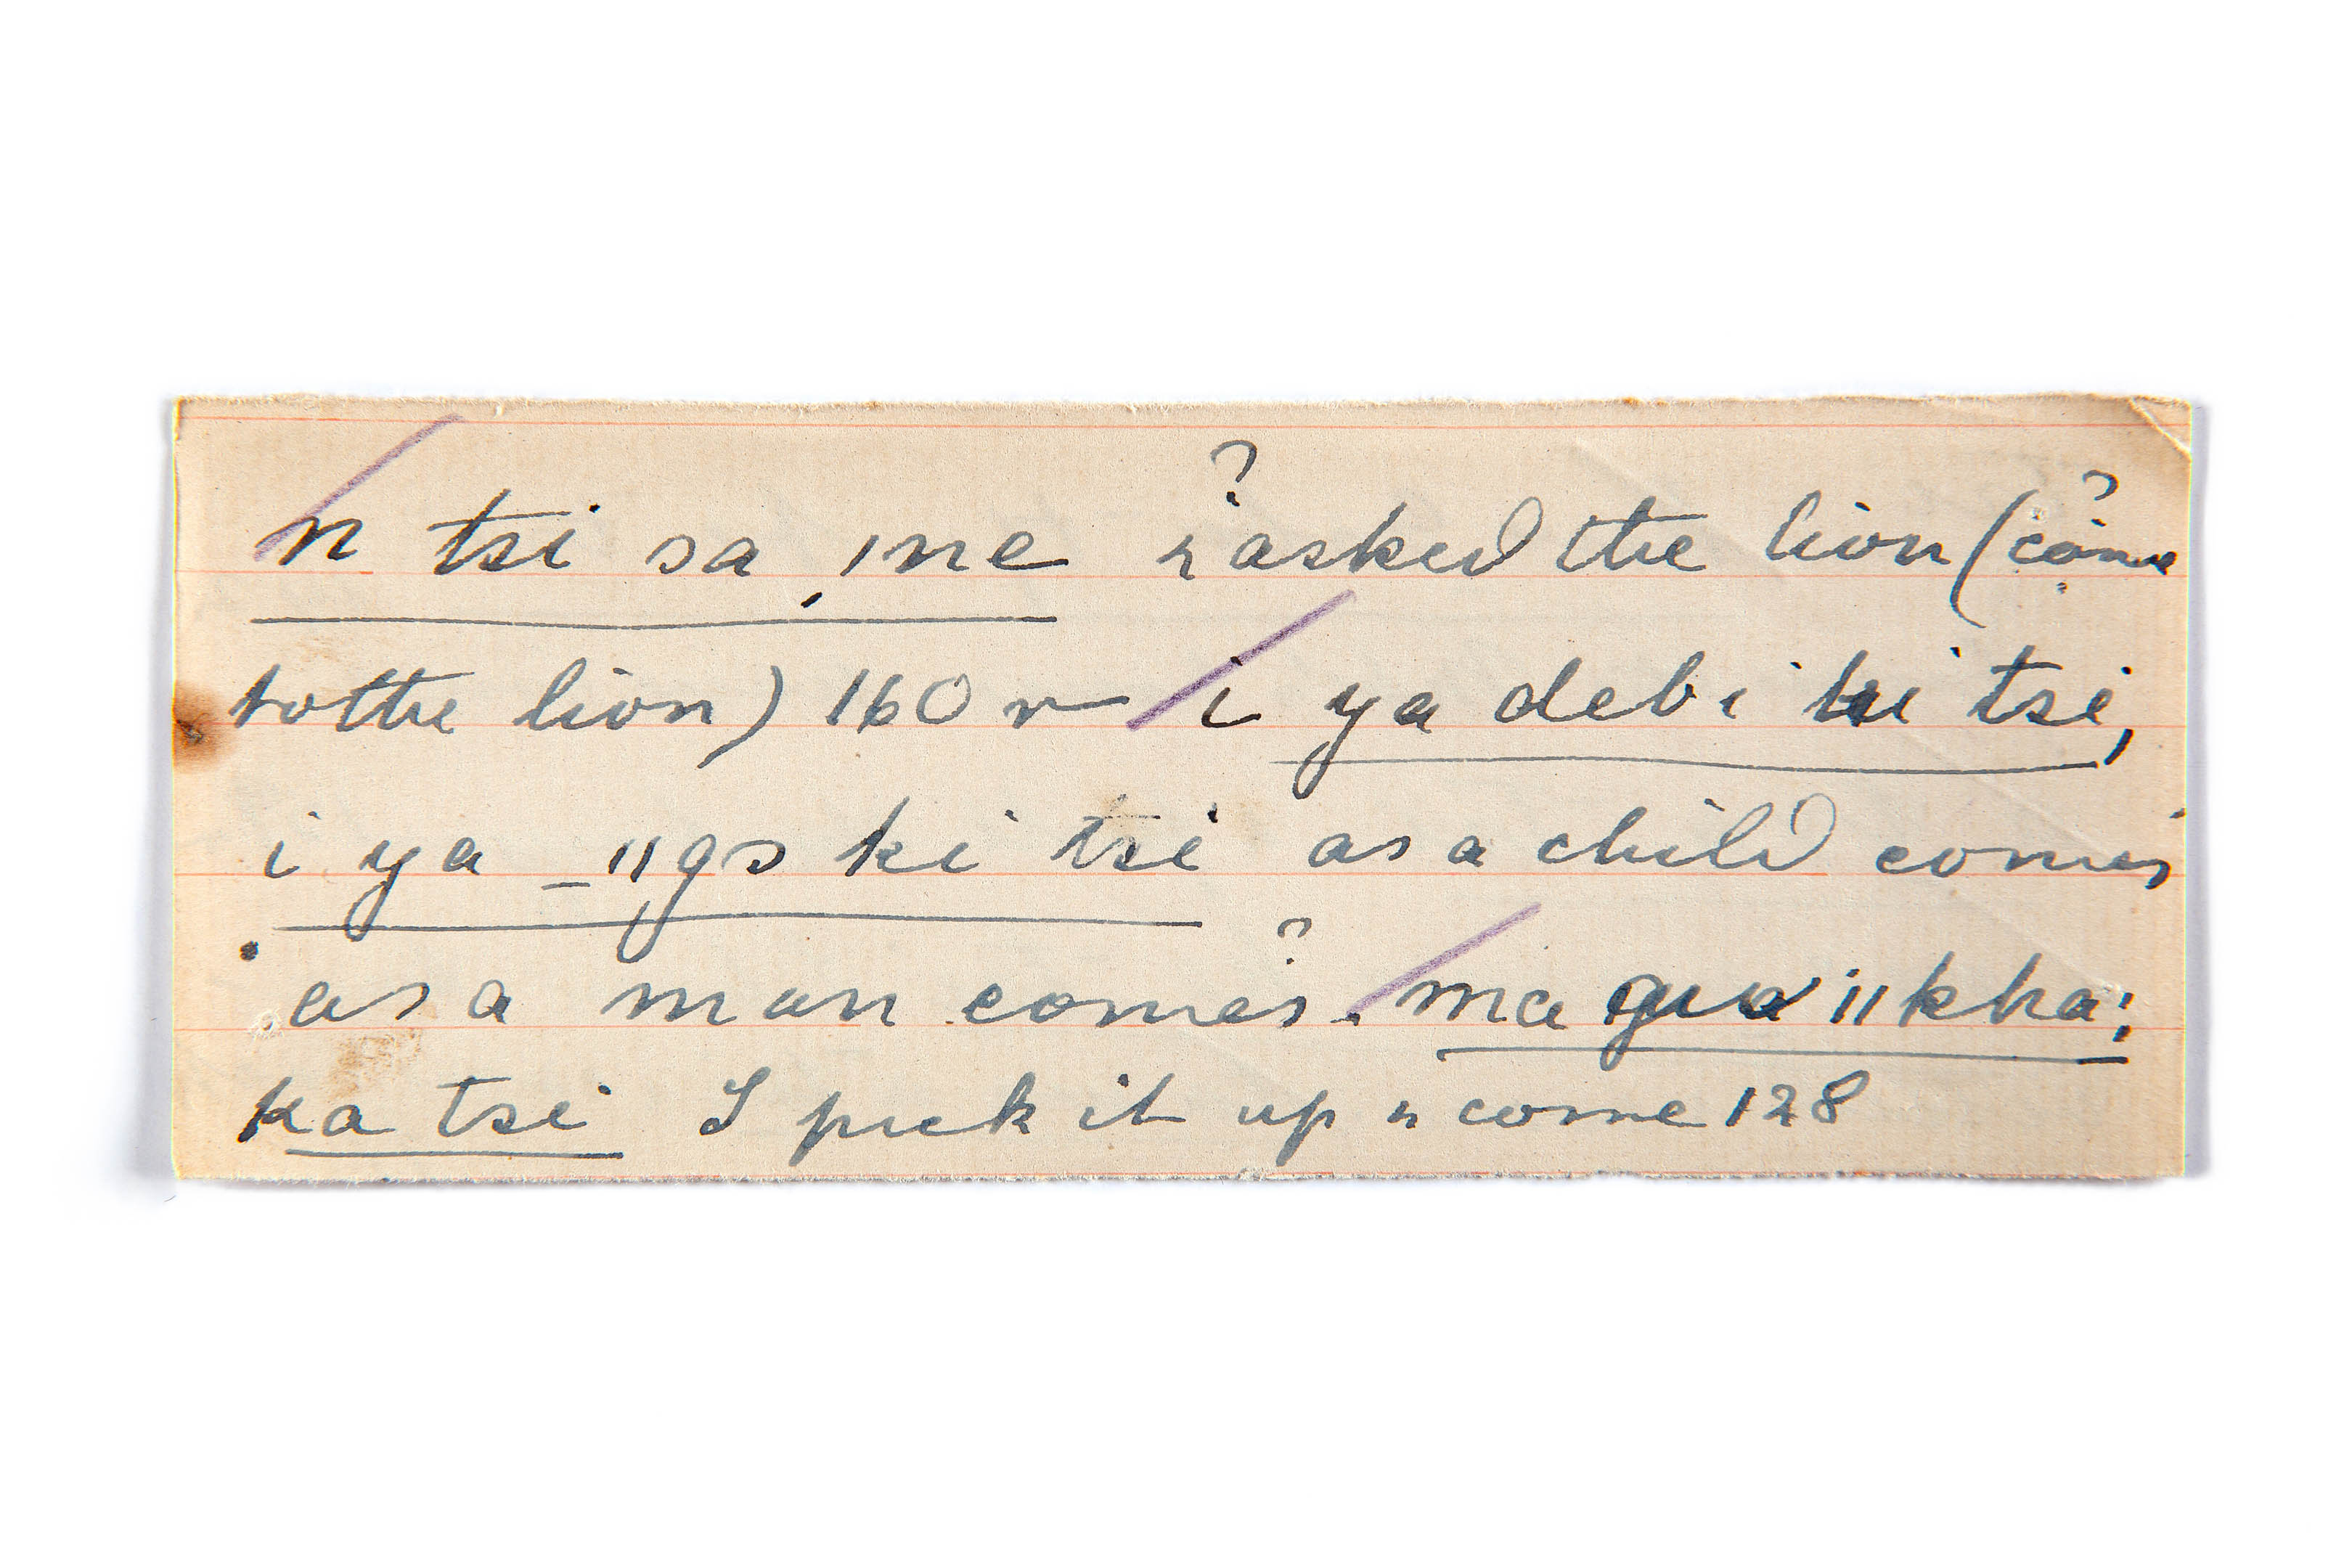 n tsi sa, ıne ? & asked the lion (come ?
to the lion) 160 r i ya debi ki tsi,
i ya _ ǁgɔ ki tsi as a child comes
as a man comes ? . ma gua ǁkha;
ka tsi I pick it up & come 128